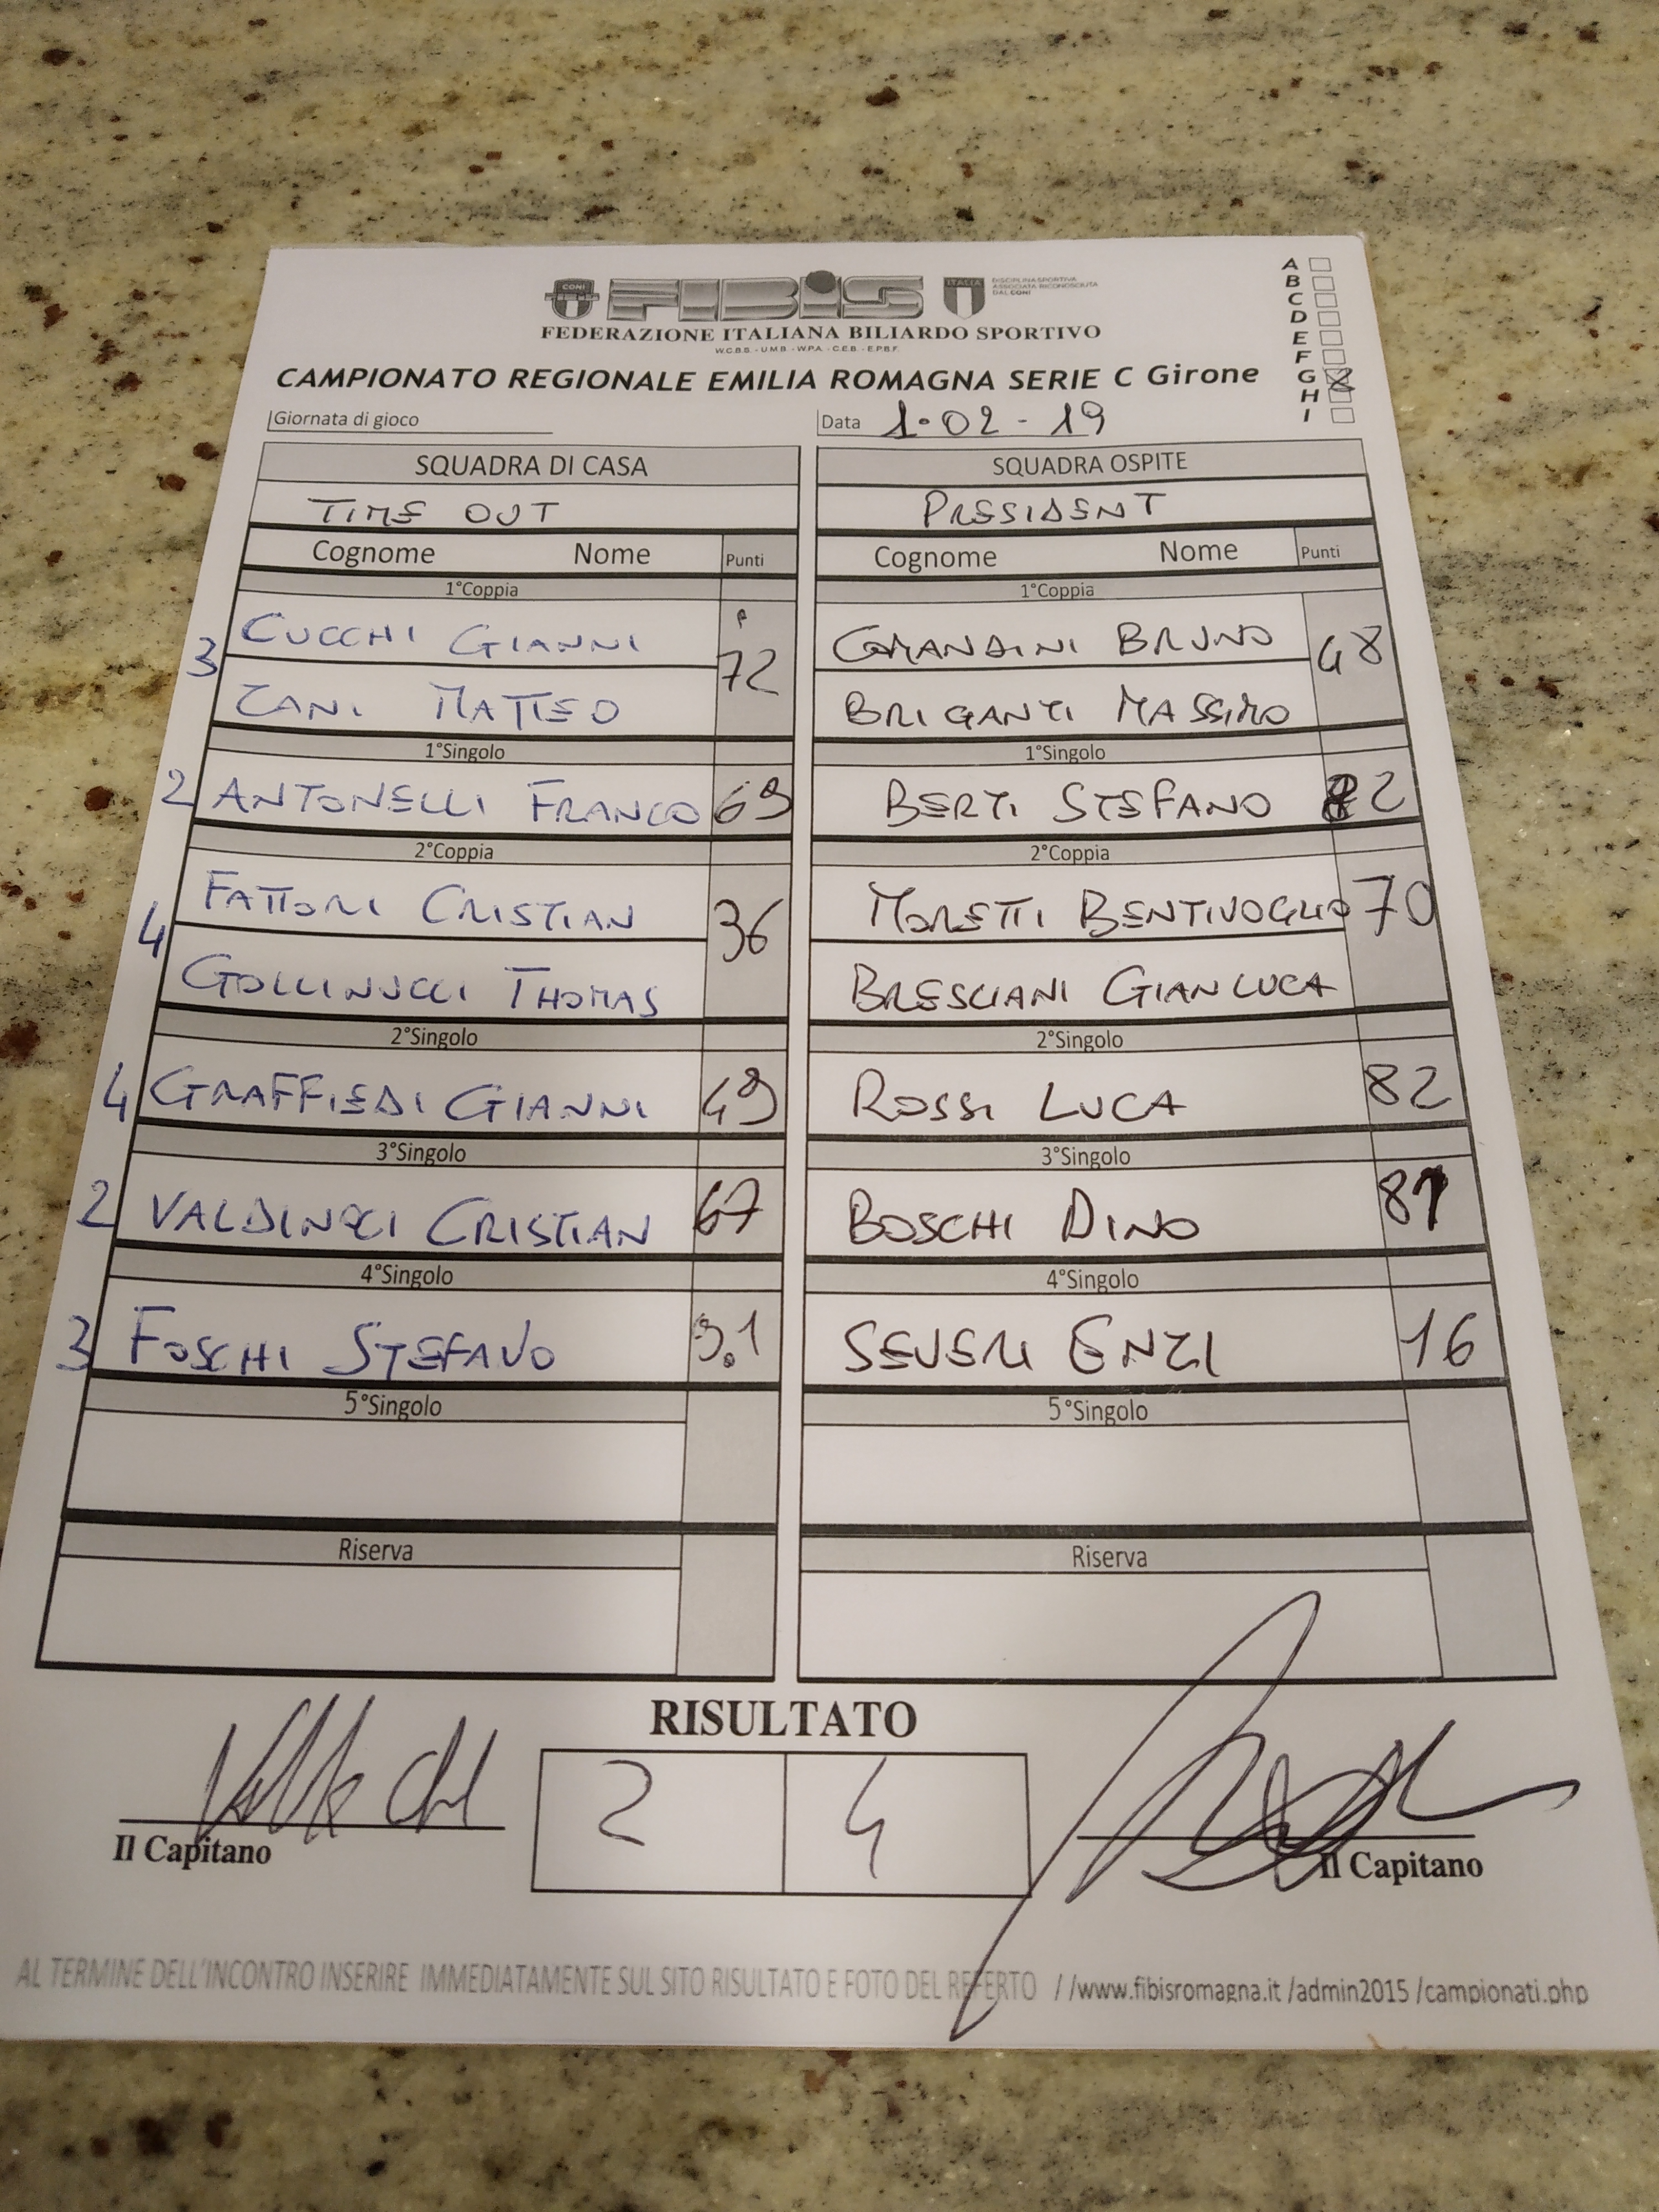 CONI
FIBIS
ITALIA
DISCIPLINA SPORTIVA
ASSOCIATA RICONOSCIUTA
DAL CONI
FEDERAZIONE ITALIANA BILIARDO SPORTIVO
W.C.B.S. - U.M.B. - W.P.A. - C.E.B. - E.P.B.F.
CAMPIONATO REGIONALE EMILIA ROMAGNA SERIE C Girone
A
B
C
D
E
F
G
H
I
Giornata di gioco
Data 1-02-19
SQUADRA DI CASA SQUADRA OSPITE
TIME OUT PRESIDENT
Cognome Nome Punti Cognome Nome Punti
1°Coppia 1°Coppia
3 CUCCHI GIANNI 72 COMANDINI BRUNO 48
ZANI MATTEO BRIGANTI MASSIMO
1°Singolo 1°Singolo
2 ANTONELLI FRANCO 69 BERTI STEFANO 82
2°Coppia 2°Coppia
4 FATTORI CRISTIAN 36 MORETTI BENTIVOGLIO 70
GOLLINUCCI THOMAS BRESCIANI GIANLUCA
2°Singolo 2°Singolo
4 GRAFFIEDI GIANNI 49 ROSSI LUCA 82
3°Singolo 3°Singolo
2 VALDINOCI CRISTIAN 67 BOSCHI DINO 81
4°Singolo 4°Singolo
3 FOSCHI STEFANO 91 SEVERI ENZI 16
5°Singolo 5°Singolo
Riserva Riserva
RISULTATO
2 4
Il Capitano Il Capitano
AL TERMINE DELL'INCONTRO INSERIRE IMMEDIATAMENTE SUL SITO RISULTATO E FOTO DEL REFERTO //www.fibisromagna.it /admin2015 /campionati.php